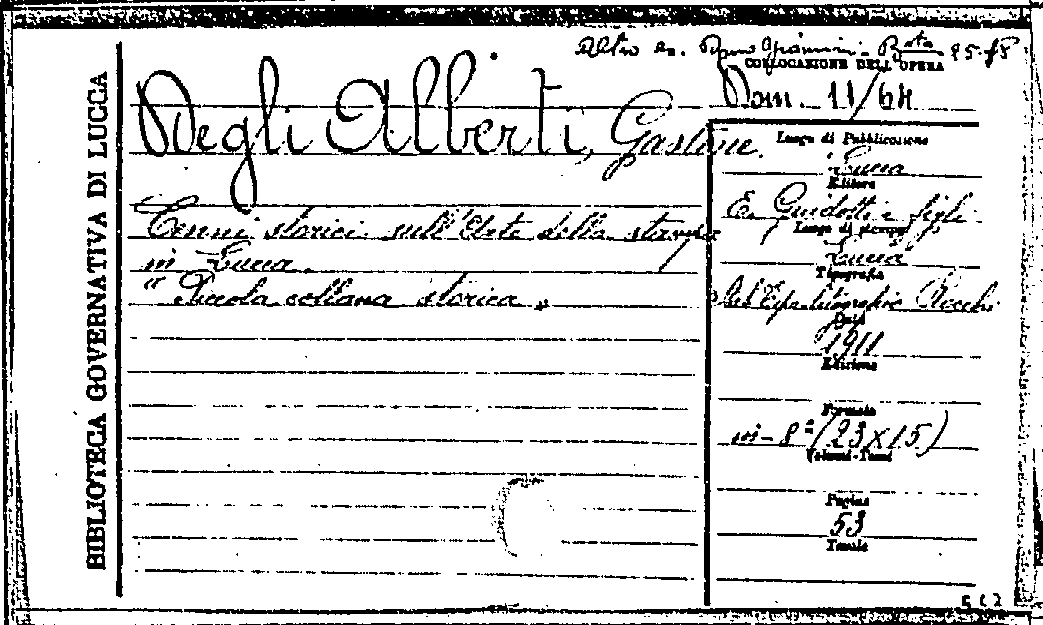 BIBLIOTECA GOVERNATIVA DI LUCCA
Altro es.
COLLOCAZIONE DELL'OPERA
Dom. 11/64
Degli Alberti, Gastone.
Cenni storici sull'Arte della stampa
in Lucca.
"Piccola collana storica"
Luogo di Pubblicazione
Lucca
Editore
E. Guidotti e figli
Luogo di stampa
Lucca
Tipografia
Rocchi
Data
1911
Edizione
Formato
in-8° (23x15)
Volumi-Tomi
Pagine
53
Tavole